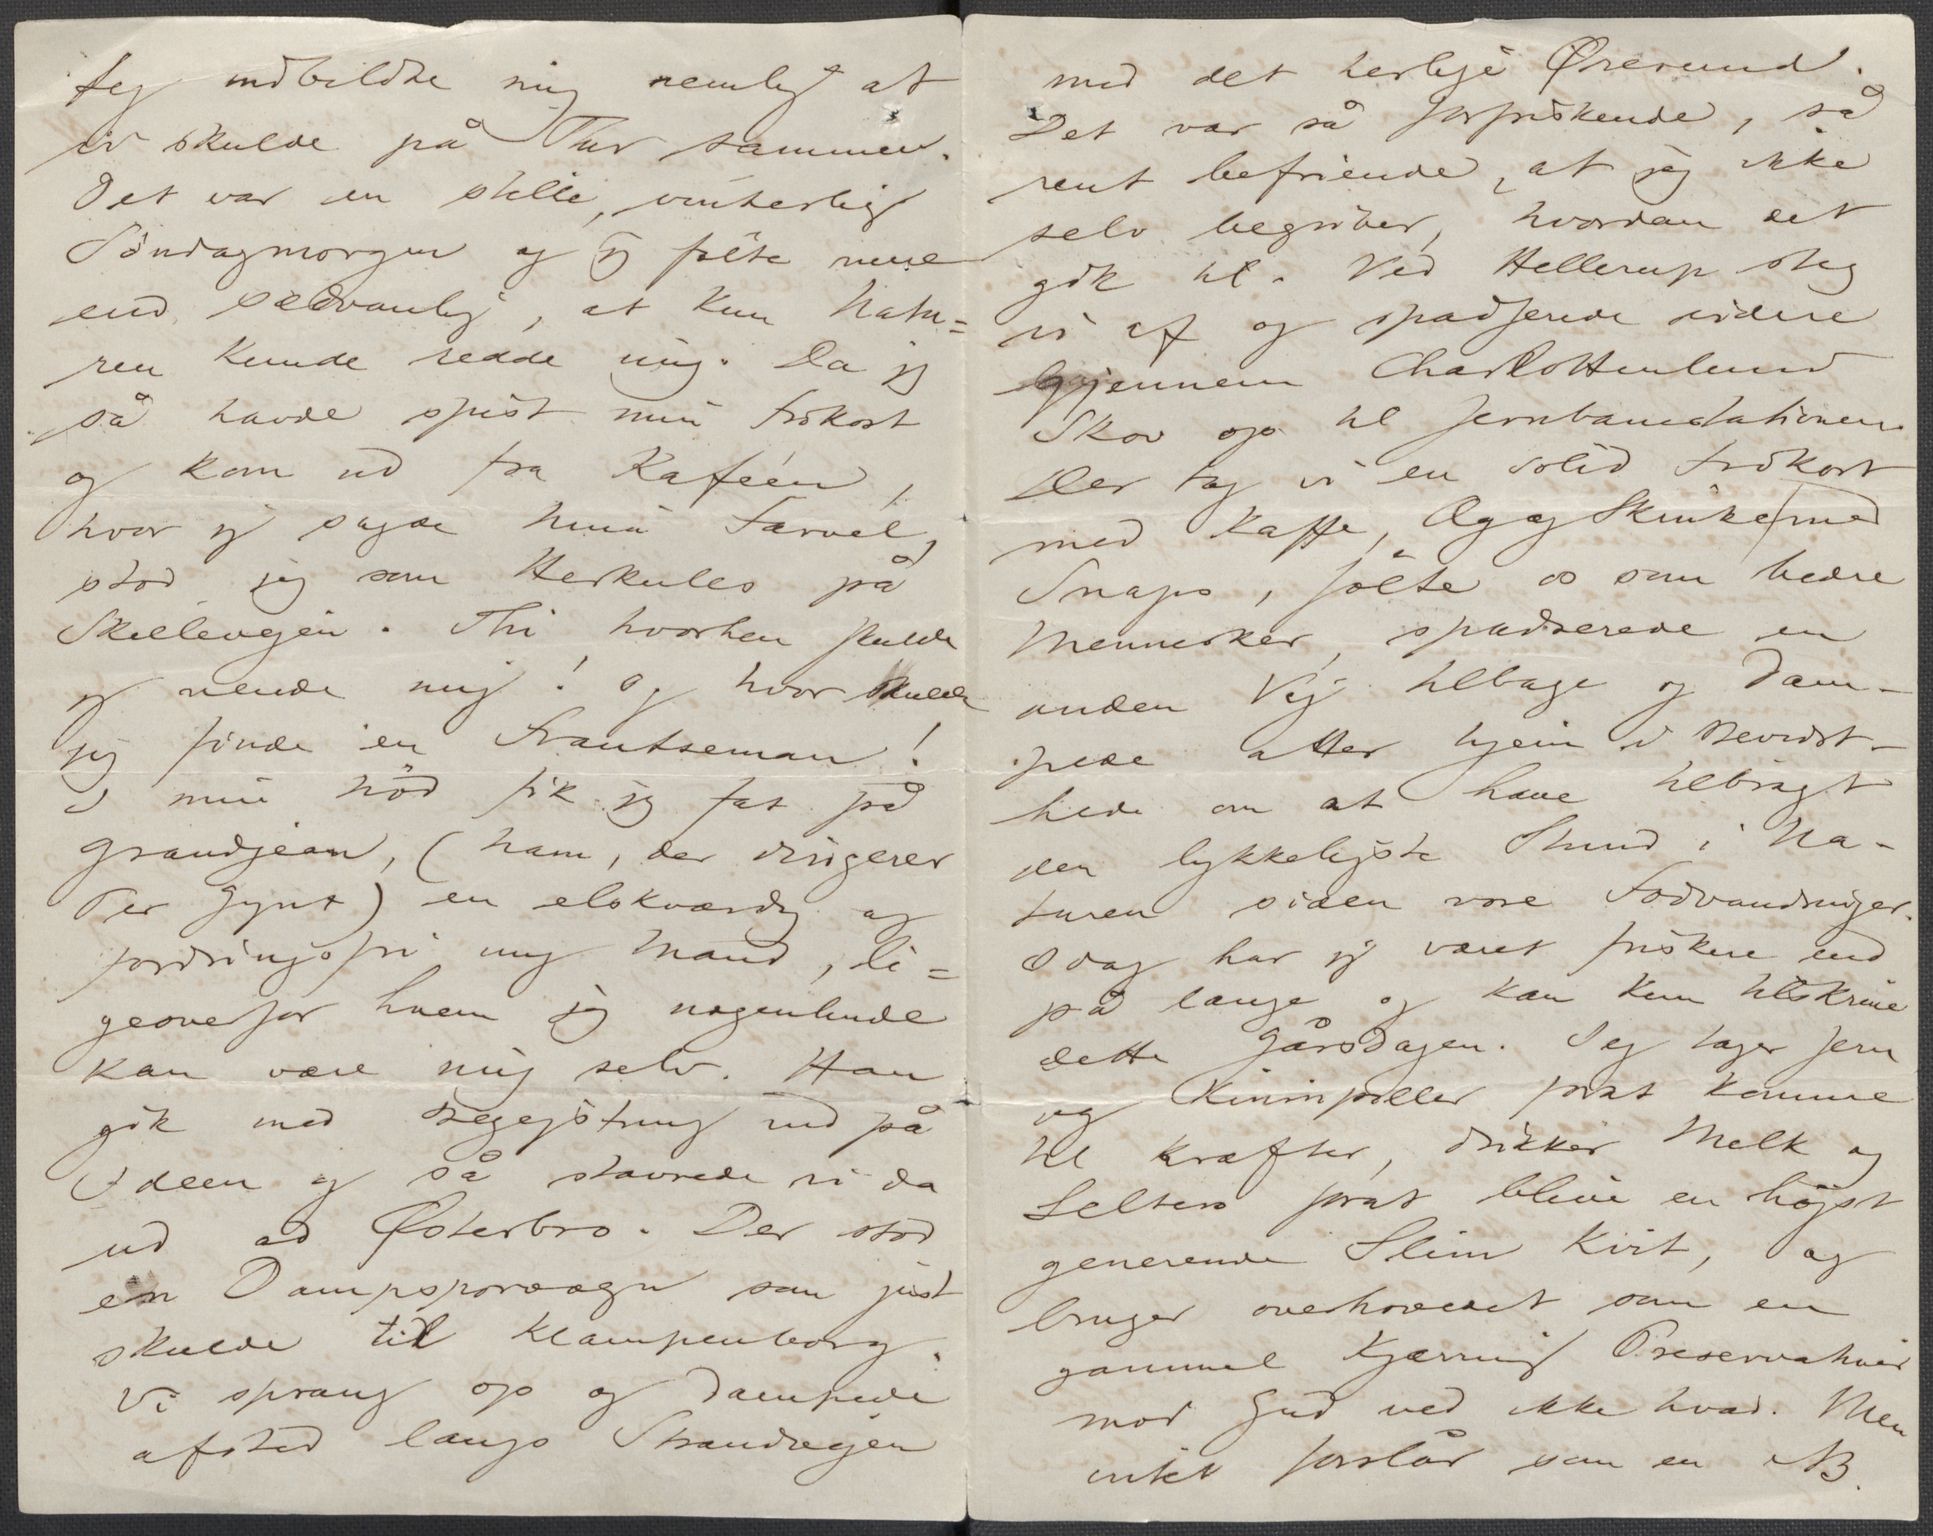 Jeg indbildte mig nemlig at
vi skulde på Thur sammen.
Det var en stille, vinterlig
Söndagmorgen og jeg fölte mere
end sædvanlig, at kun Natu=
ren kunde redde mig. Da jeg
så havde spist min Frokost
og kom ud fra Kaféen,
hvor jeg sagde hende Farvel,
stod jeg som Herkules på
Skilleveien. Thi hvorhen skulde
jeg vende mig! Og hvor skulde
jeg finde en Frantseman!
I min Nöd fik jeg fat på
Grandjean, (ham, der dirigerer
Per Gynt) en elskværdig og
fordringsfri ung Mand, li=
geoverfor hvem jeg nogenlunde
kan være mig selv. Han
gik med Begejstring ind på
Ideen og så stavrede vi da
ud ad Østerbro. Der stod
en Dampsporvogn som just
skulde til Klampenborg.
Vi sprang op og dampede
afsted langs Strandvejen
med det herlige Øresund.
Det var så forfriskende, så
rent befriende, at jeg ikke
selv begriber, hvordan det
gik til. Ved Hellerup steg
vi af og spadserede videre
gjennem Charlottenlund
Skov op til Jernbanestationen.
Der tog vi en solid Frokost
med Kaffe, Æg og Skinke med
Snaps, fölte os som bedre
Mennesker, spadserede en
anden Vej tilbage og dam-
pede atter hjem i Bevidst-
hede om at have tilbragt
den lykkeligste Stund i Na-
turen siden vore Fodvandringer.
I dag har jeg været friskere end
på længe og kan kun tilskrive
dette Gårsdagen. Jeg tager Jern
og Kininpiller forat komme
til Kræfter, drikker Melk og
Selters forat blive en höjst
generende Slim kvit, og
bruger overhovedet som en
gammel Kjærring Preservativer
mod Gud ved ikke hvad. Men
intet forslår som en NB.